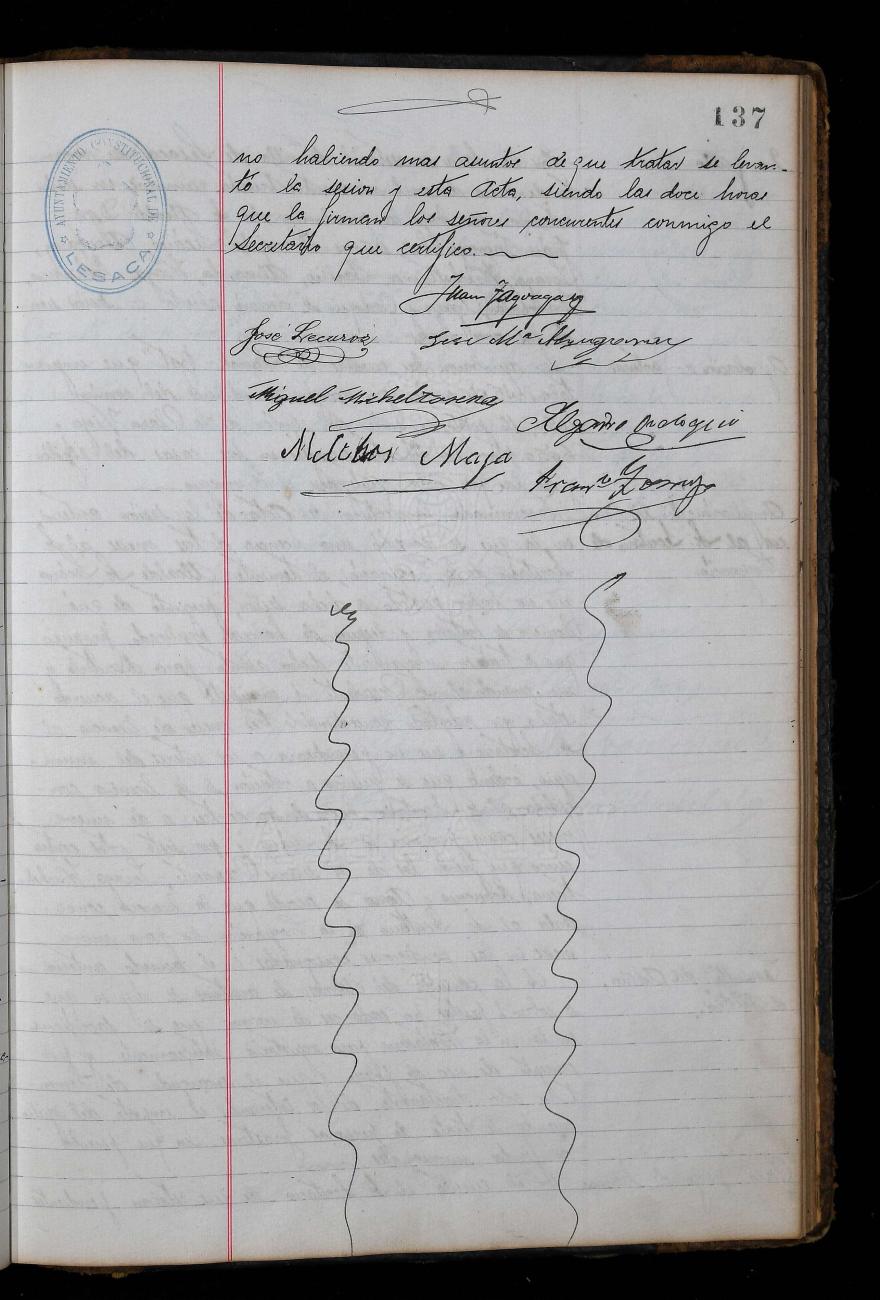 137
AYUNTAMIENTO CONSTITUCIONAL DE
LESACA
no habiendo mas asuntos de que tratar se levan-
tó la sesion y esta Acta, siendo las doce horas
que la firman los señores concurentes conmigo el
Secretario que certifico.
Juan
José Lecuroz
José Mª
Miguel Micheltorena
Ordoqui
Melchor Maya
Franco